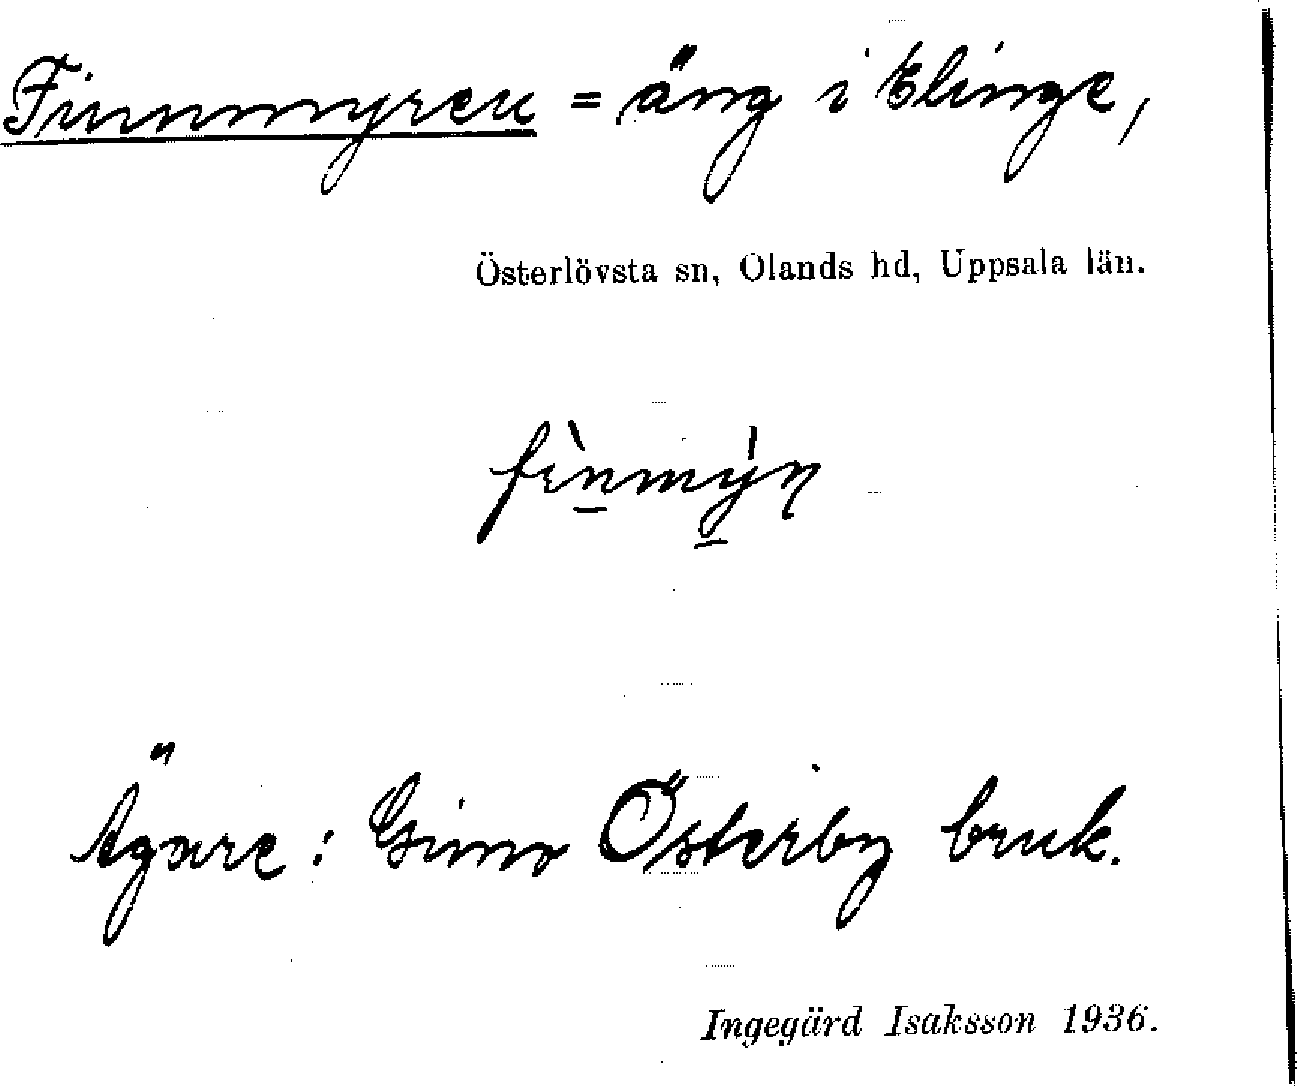 Finnmyren = äng i Elinge,
Österlövsta sn, Olands hd, Uppsala län.
fìnmýn
Ägare: Gimo Österby bruk.
Ingegärd Isaksson 1936.